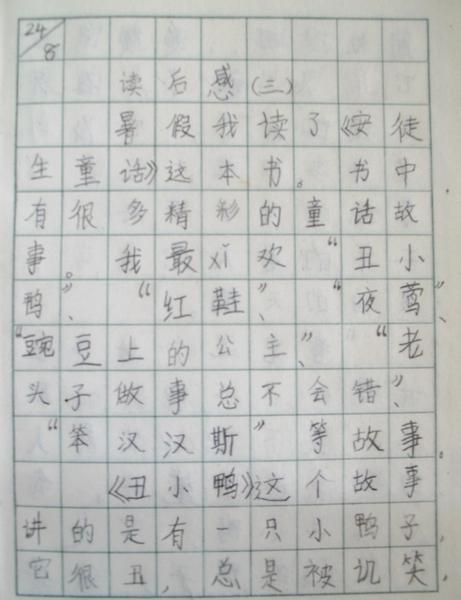 24/8
读后感(三)
暑假我读了《安徒
生童话》这本书。书中
有很多精彩的童话故
事。我最xǐ欢“丑小
鸭”、“红鞋”、“夜莺”、
“豌豆上的公主”、“老
头子做事总不会错”、
“笨汉汉斯”等故事。
《丑小鸭》这个故事
讲的是有一只小鸭子,
它很丑,总是被讥笑,